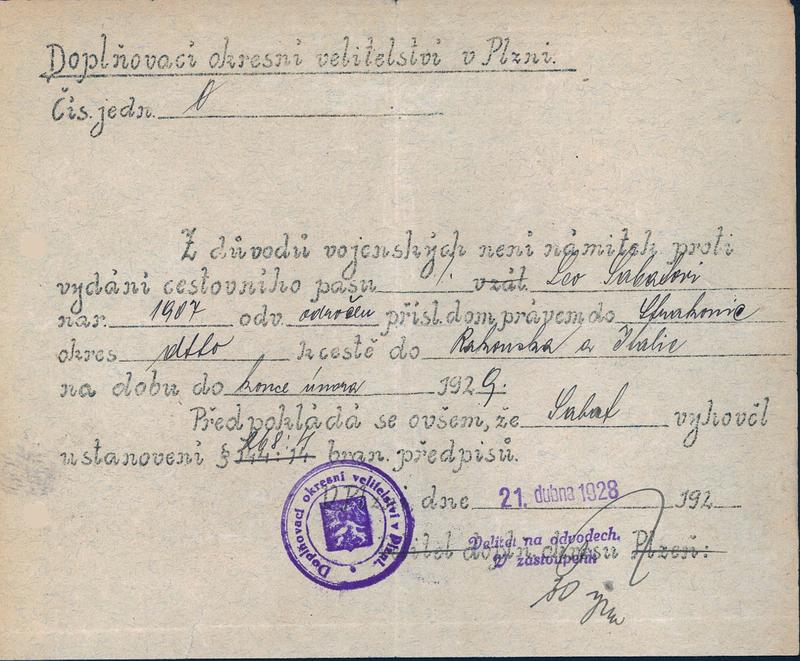 Doplňovací okresní velitelství v Plzni.
Čís. jedn.
Z důvodů vojenských není námitek proti
vydání cestovního pasu /. vzát. Leo Sabatovi
nar. 1907 odv. odročen přísl. dom. právem do Strakonic
okres dtto k cestě do Rakouska a Italie
na dobu do konce února 1929.
Předpokládá se ovšem, že Sabat vyhověl
ustanovení § bran. předpisů.
dne 21. dubna 1928 192
doplň. okresu Plzeň:
Velitel na odvodech.
V zastoupení
Doplňovací okresní velitelství v Plzni.